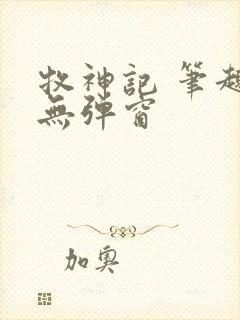 牧神記 筆趣
無彈窗
加奧